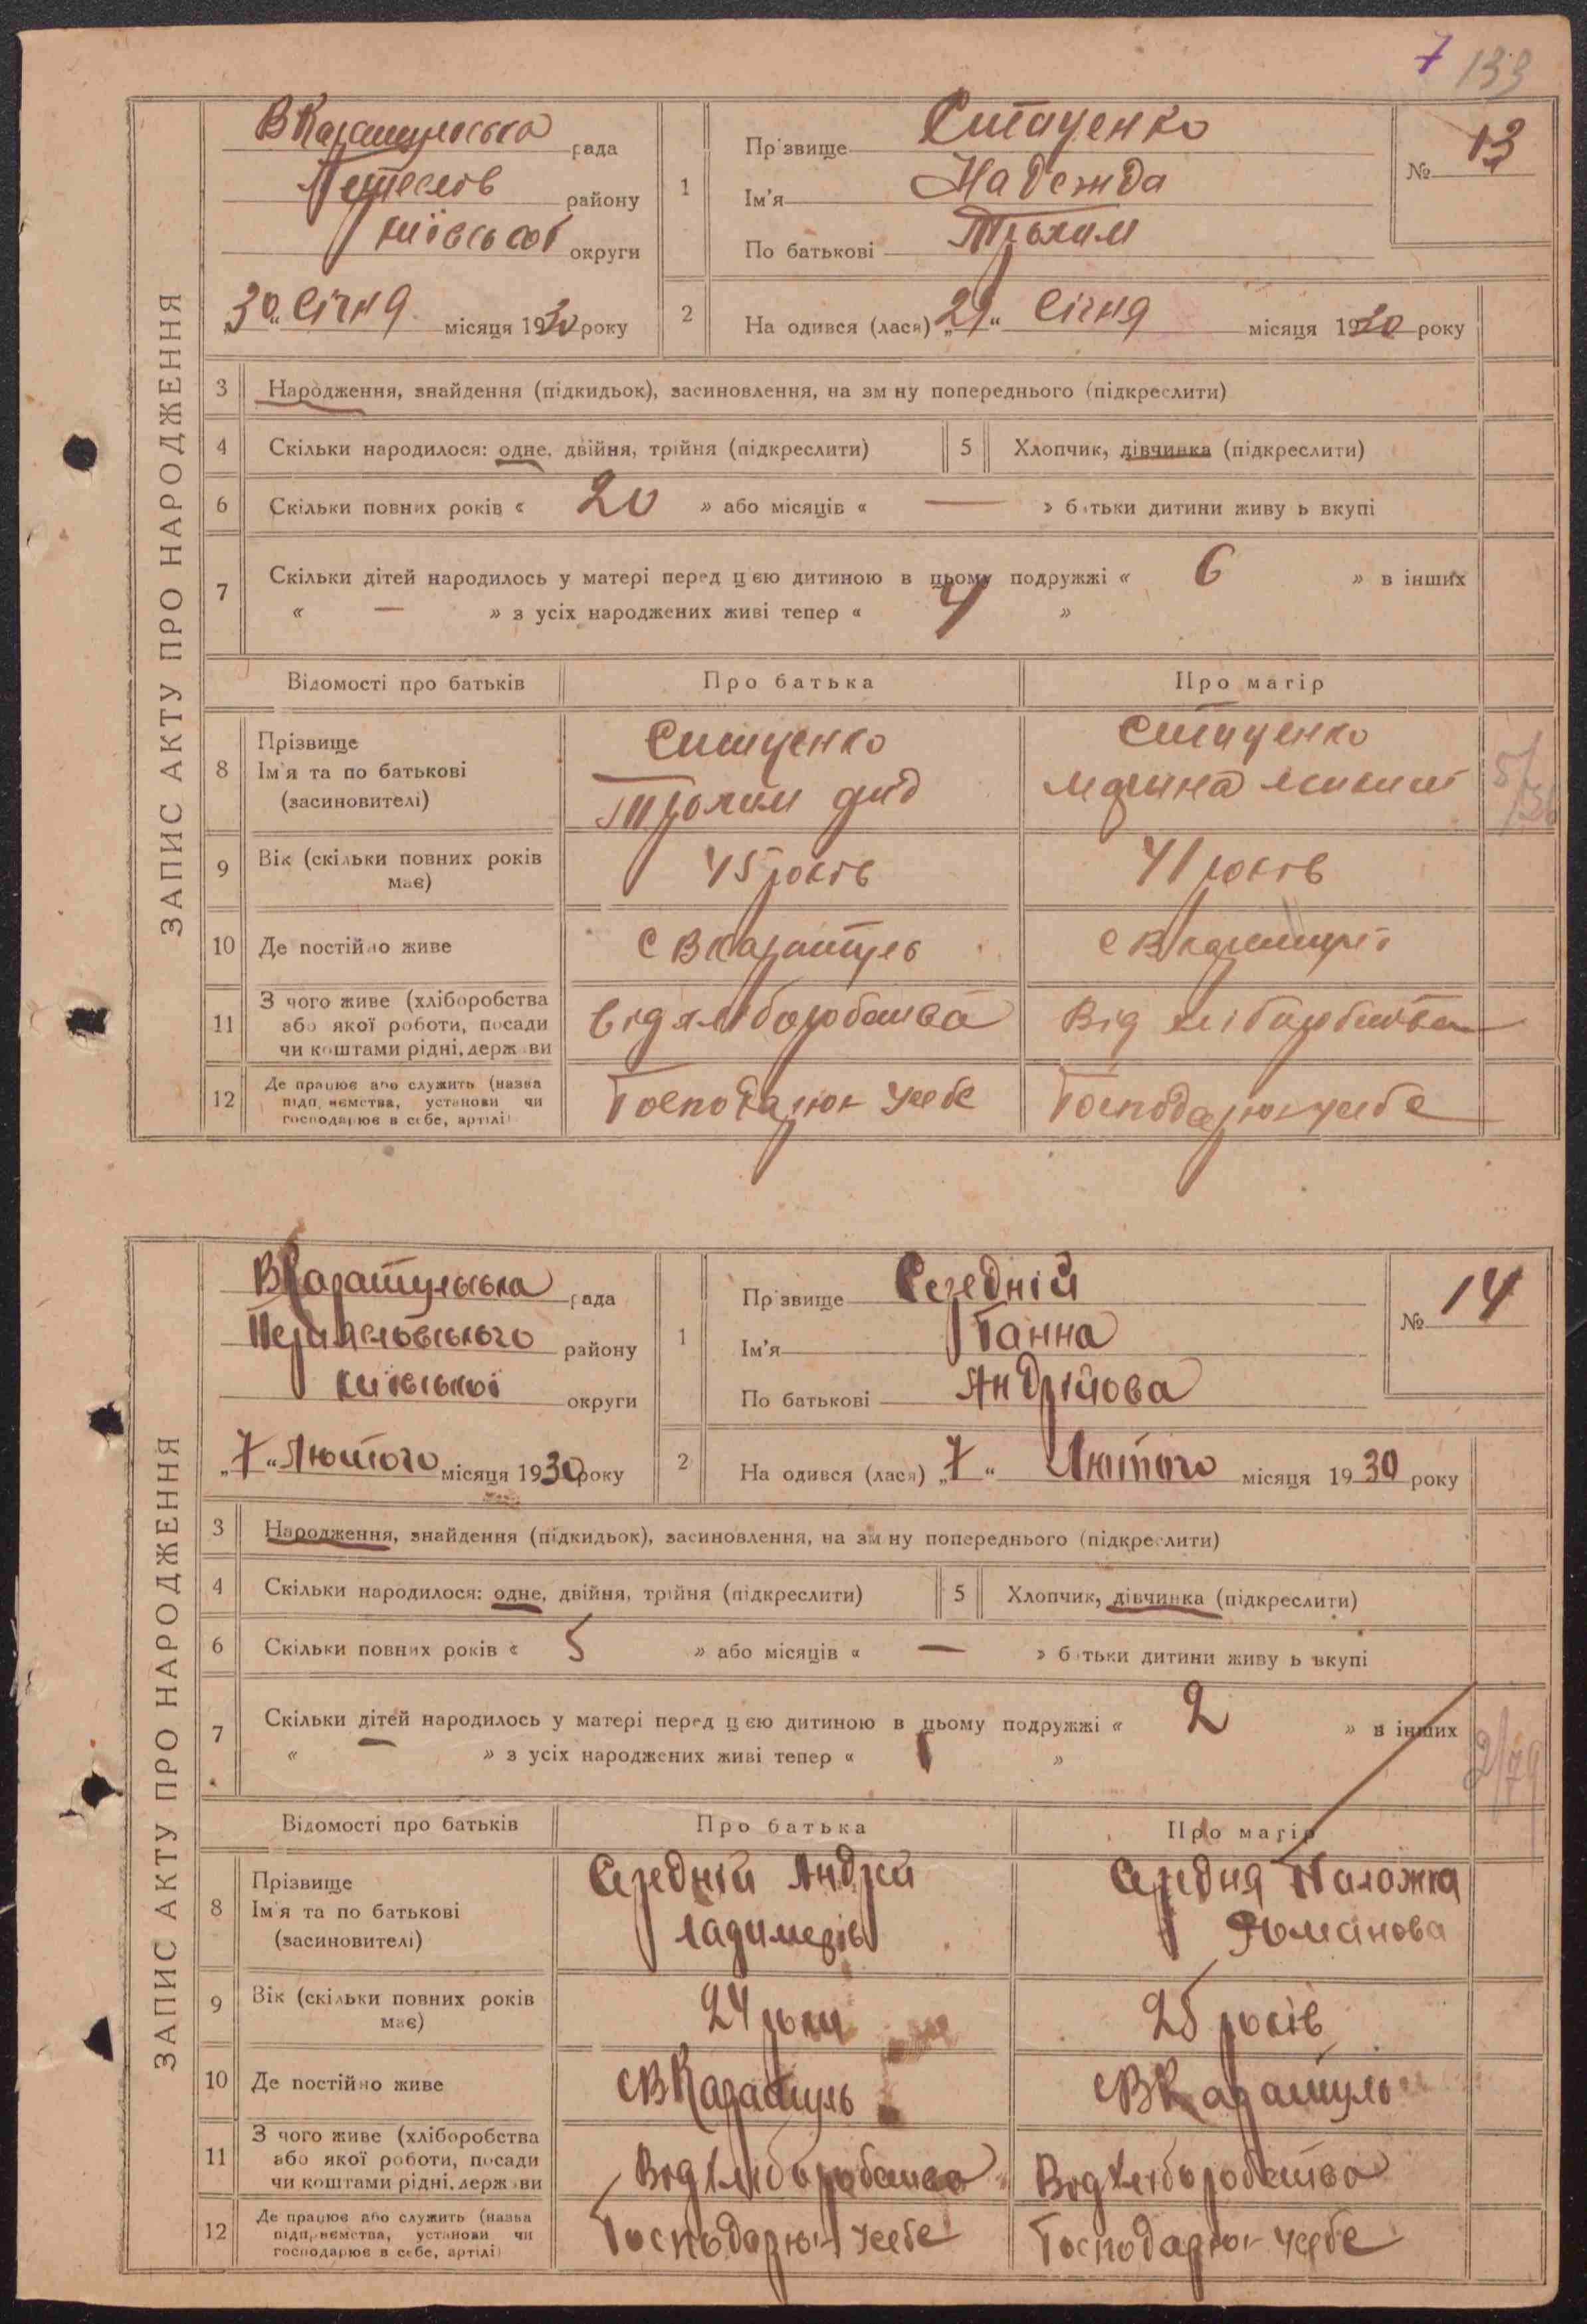 7 133
ЗАПИС АКТУ ПРО НАРОДЖЕННЯ
ВКаратульська рада
району
Київської округи
„30“ Січня місяця 1930 року
1
Прізвище Ситаценко
Ім'я Надежда
По батькові Трохим
№ 13
2
На одився (лася) „29“ Січня місяця 1930 року
3 Народження, знайдення (підкидьок), засиновлення, на зм ну попереднього (підкреслити)
4 Скільки народилося: одне, двійня, трійня (підкреслити)
5 Хлопчик, дівчинка (підкреслити)
6 Скільки повних років « 20 » або місяців « — » б тьки дитини живу ь вкупі
7 Скільки дітей народилось у матері перед цією дитиною в цьому подружжі « 6 » в інших
« — » з усіх народжених живі тепер « 4 »
Відомості про батьків Про батька Про матір
8 Прізвище
Ім'я та по батькові
(засновителі)
Трохим
5/36
9 Вік (скільки повних років
має)
45 років
41 років
10 Де постійно живе
С ВКаратуль
С ВКаратулі
11 З чого живе (хліборобства
або якої роботи, посади
чи коштами рідні, держ ви
від хліборобства
Від хліборобства
12 Де працює або служить (назва
підпр иємства, установи чи
господарює в себе, артілі)
Господарює усебе
Господарює усебе
ЗАПИС АКТУ ПРО НАРОДЖЕННЯ
ВКаратульська рада
Переяславського району
Київської округи
„7“ Лютого місяця 1930 року
1
Прізвище Середній
Ім'я Ганна
По батькові Андрійова
№ 14
2
На одився (лася) „7“ Лютого місяця 1930 року
3 Народження, знайдення (підкидьок), засиновлення, на зм ну попереднього (підкреслити)
4 Скільки народилося: одне, двійня, трійня (підкреслити)
5 Хлопчик, дівчинка (підкреслити)
6 Скільки повних років « 5 » або місяців « — » б тьки дитини живу ь вкупі
7 Скільки дітей народилось у матері перед цією дитиною в цьому подружжі « 2 » в інших
« — » з усіх народжених живі тепер « 1 »
2/79
Відомості про батьків Про батька Про матір
8 Прізвище
Ім'я та по батькові
(засиновителі)
Середній Андрей
Ладимерів
Середня Палажка
Романова
9 Вік (скільки повних років
має)
24 роки
25 років
10 Де постійно живе
СВКаратуль
СВКаратуль
11 З чого живе (хліборобства
або якої роботи, посади
чи коштами рідні, держ ви
Від хліборобства
Від хліборобства
12 Де працює або служить (назва
підпр иємства, установи чи
господарює в себе, артілі)
Господарює усебе
Господарює усебе